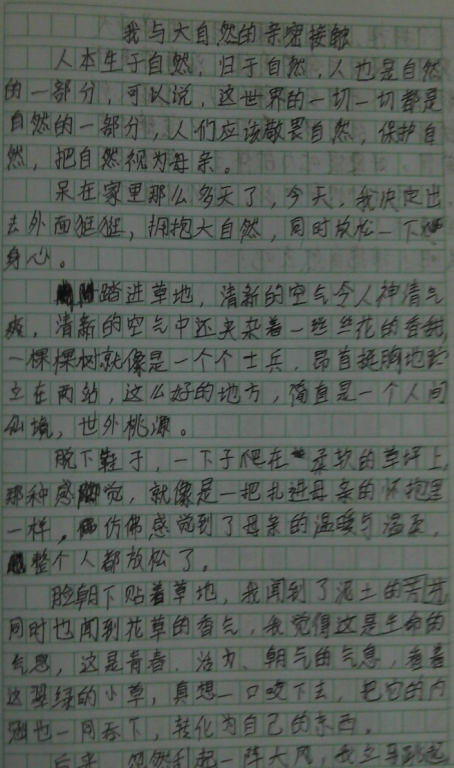 我与大自然的亲密接触
人本生于自然，归于自然，人也是自然
的一部分，可以说，这世界的一切一切都是
自然的一部分，人们应该敬畏自然，保护自
然，把自然视为母亲。
呆在家里那么多天了，今天，我决定出
去外面逛逛，拥抱大自然，同时放松一下
身心。
踏进草地，清新的空气令人神清气
爽，清新的空气中还夹杂着一丝丝花的香甜，
一棵棵树就像是一个个士兵，昂首挺胸地
立在两站，这么好的地方，简直是一个人间
仙境，世外桃源。
脱下鞋子，一下子爬在柔软的草坪上，
那种感觉，就像是一把扎进母亲的怀抱里
一样，仿佛感觉到了母亲的温暖与温柔，
整个人都放松了。
脸朝下贴着草地，我闻到了泥土的芳
同时也闻到花草的香气，我觉得这是生命的
气息，这是青春、活力、朝气的气息，看着
这翠绿的小草，真想一口咬下去，把它的内
涵也一同吞下，转化为自己的东西。
后来，忽然刮起一阵大风，我立马